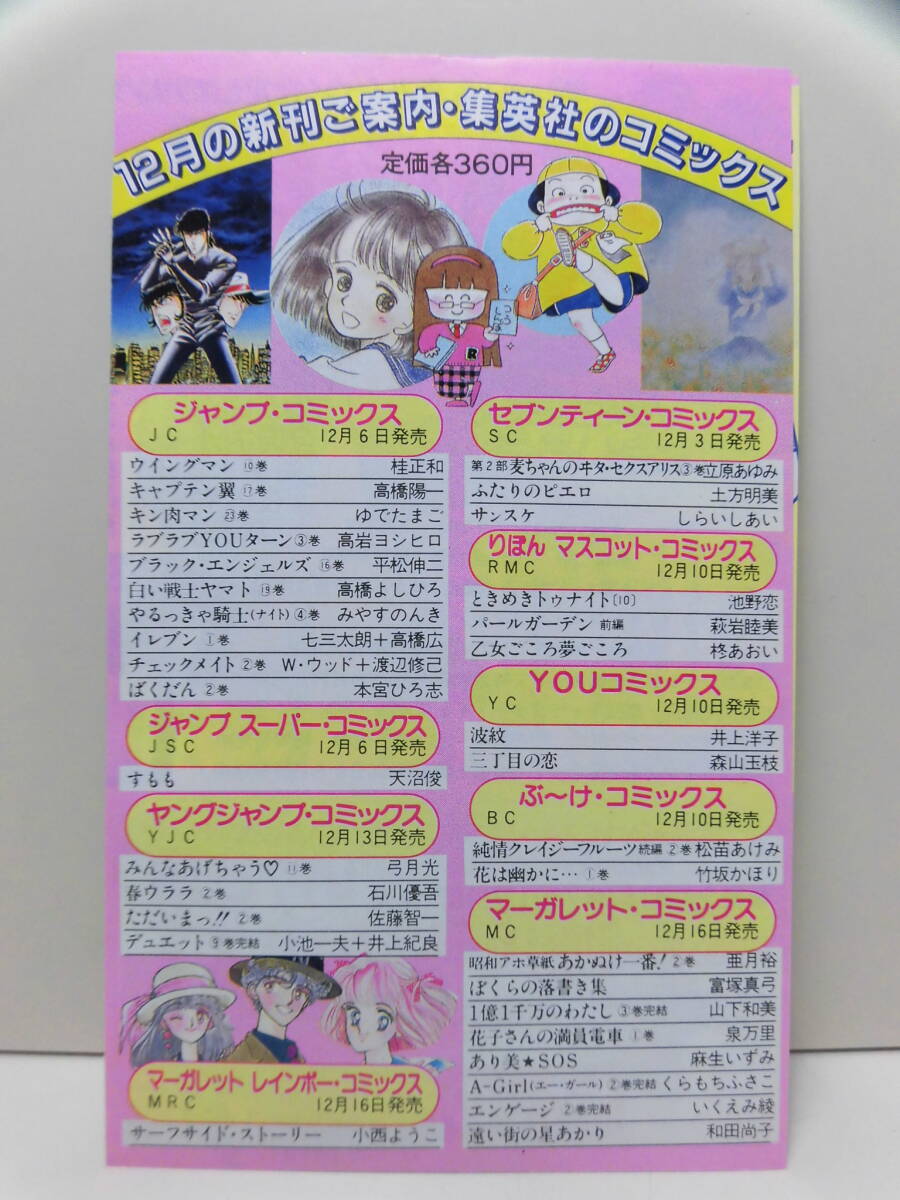 12月の新刊ご案内・集英社のコミックス
定価各360円
つうしんぼ
R
ジャンプ・コミックス
JC 12月6日発売
ウイングマン ⑩巻 桂正和
キャプテン翼 ⑰巻 高橋陽一
キン肉マン ㉓巻 ゆでたまご
ラブラブYOUターン ③巻 高岩ヨシヒロ
ブラック・エンジェルズ ⑯巻 平松伸二
白い戦士ヤマト ⑲巻 高橋よしひろ
やるっきゃ騎士(ナイト) ④巻 みやすのんき
イレブン ①巻 七三太朗+高橋広
チェックメイト ②巻 W・ウッド+渡辺修己
ばくだん ②巻 本宮ひろ志
ジャンプ スーパー・コミックス
JSC 12月6日発売
すもも 天沼俊
ヤングジャンプ・コミックス
YJC 12月13日発売
みんなあげちゃう♡ ⑪巻 弓月光
春ウララ ②巻 石川優吾
ただいまっ!! ②巻 佐藤智一
デュエット ⑨巻完結 小池一夫+井上紀良
マーガレット レインボー・コミックス
MRC 12月16日発売
サーフサイド・ストーリー 小西ようこ
セブンティーン・コミックス
SC 12月3日発売
第2部 麦ちゃんのヰタ・セクスアリス ③巻 立原あゆみ
ふたりのピエロ 土方明美
サンスケ しらいしあい
りぼん マスコット・コミックス
RMC 12月10日発売
ときめきトゥナイト〔10〕 池野恋
パールガーデン 前編 萩岩睦美
乙女ごころ夢ごころ 柊あおい
YOUコミックス
YC 12月10日発売
波紋 井上洋子
三丁目の恋 森山玉枝
ぶ〜け・コミックス
BC 12月10日発売
純情クレイジーフルーツ 続編 ②巻 松苗あけみ
花は幽かに… ①巻 竹坂かほり
マーガレット・コミックス
MC 12月16日発売
昭和アホ草紙 あかぬけ一番! ②巻 亜月裕
ぼくらの落書き集 富塚真弓
1億1千万のわたし ③巻完結 山下和美
花子さんの満員電車 ①巻 泉万里
あり美★SOS 麻生いずみ
A-Girl(エー・ガール) ②巻完結 くらもちふさこ
エンゲージ ②巻完結 いくえみ綾
遠い街の星あかり 和田尚子